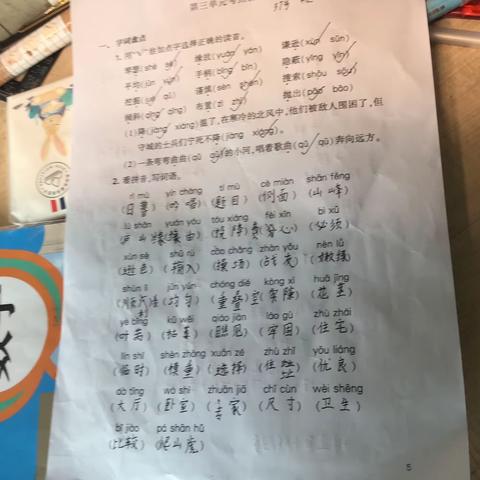 第三单元考点
一、字词盘点
1. 用"\"给加点字选择正确的读音。
缘故(yuán yán) 谦逊(xùn sūn)
平均(jūn yún) 手柄(bǐng bīn) 隐蔽(yǐng yǐn)
谨慎(sèn shèn) 搜索(shōu sōu)
倾斜(qīng qīng) 布置(zì zhì) 抛出(pāo bāo)
(1)降(jiàng xiáng)温了,在寒冷的北风中,他们被敌人围困了,但
守城的士兵们宁死不降(jiàng xiáng)。
(2)一条弯弯曲曲(qū qǔ)的小河,唱着歌曲(qū qǔ)奔向远方。
2. 看拼音,写词语。
rì mù yín chàng tí mù cè miàn shān fēng
(日暮)(吟唱)(题目)(侧面)(山峰)
lú shān yuán yóu tóu xiáng fèi xīn bì xū
(庐山)(缘由)(投降)(费心)(必须)
xùn sè shū rù zhàn yǒu nèn lǜ
(逊色)(输入)(战友)(嫩绿)
shùn lì jūn yún chóng dié kòng xì huā jīng
(顺利)(均匀)(重叠)(空隙)(花茎)
yè bǐng kū wěi qiáo jiàn láo gù zhù zhái
(叶柄)(枯萎)(瞧见)(牢固)(住宅)
lín shí shèn zhòng xuǎn zé zhù zhǐ yōu liáng
(临时)(慎重)(选择)(住址)(优良)
dà tīng wò shì zhuān jiā chǐ cùn wèi shēng
(大厅)(卧室)(专家)(尺寸)(卫生)
bǐ jiào pá shān hǔ
(比较)(爬山虎)
5